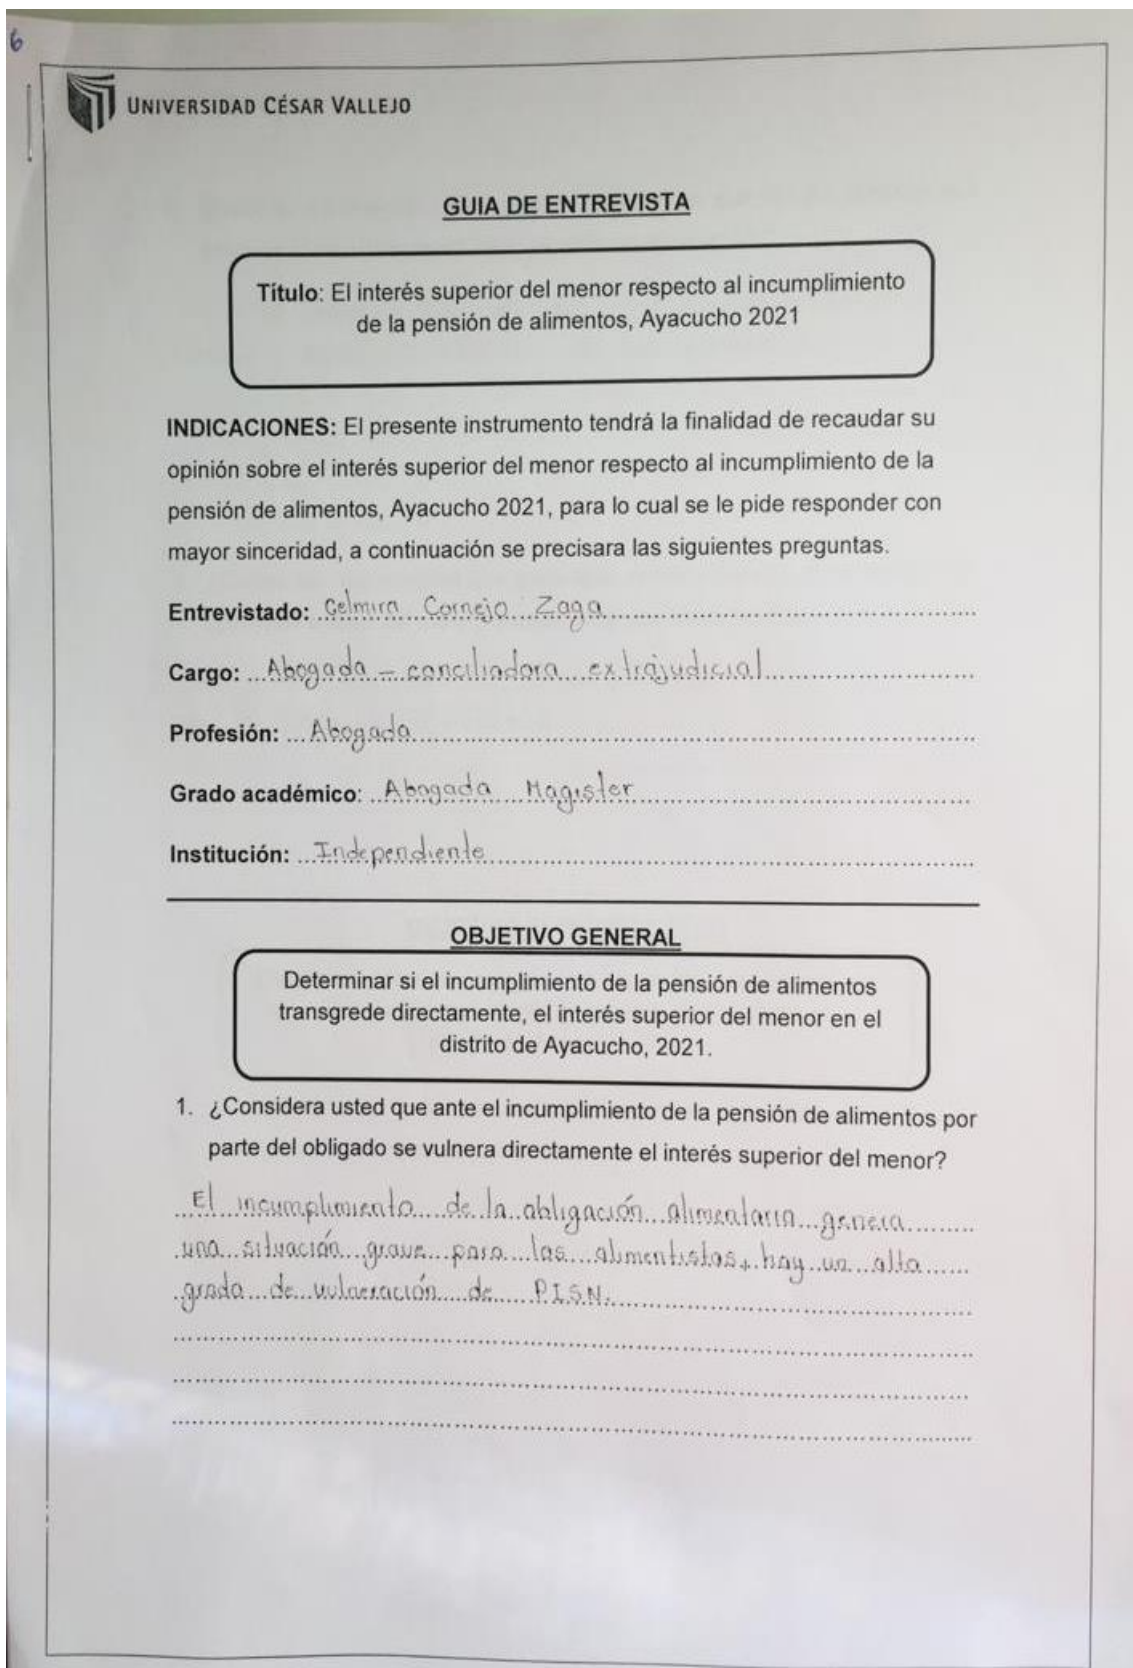 6
UNIVERSIDAD CÉSAR VALLEJO
GUIA DE ENTREVISTA
Título: El interés superior del menor respecto al incumplimiento
de la pensión de alimentos, Ayacucho 2021
INDICACIONES: El presente instrumento tendrá la finalidad de recaudar su
opinión sobre el interés superior del menor respecto al incumplimiento de la
pensión de alimentos, Ayacucho 2021, para lo cual se le pide responder con
mayor sinceridad, a continuación se precisara las siguientes preguntas.
Entrevistado: Celmira Cornejo Zaga
Cargo: Abogada – conciliadora extrajudicial
Profesión: Abogada
Grado académico: Abogada Magister
Institución: Independiente
OBJETIVO GENERAL
Determinar si el incumplimiento de la pensión de alimentos
transgrede directamente, el interés superior del menor en el
distrito de Ayacucho, 2021.
1. ¿Considera usted que ante el incumplimiento de la pensión de alimentos por
parte del obligado se vulnera directamente el interés superior del menor?
El incumplimiento de la obligación alimentaria genera
una situación grave para los alimentistas, hay un alto
grado de vulneración de PISN.